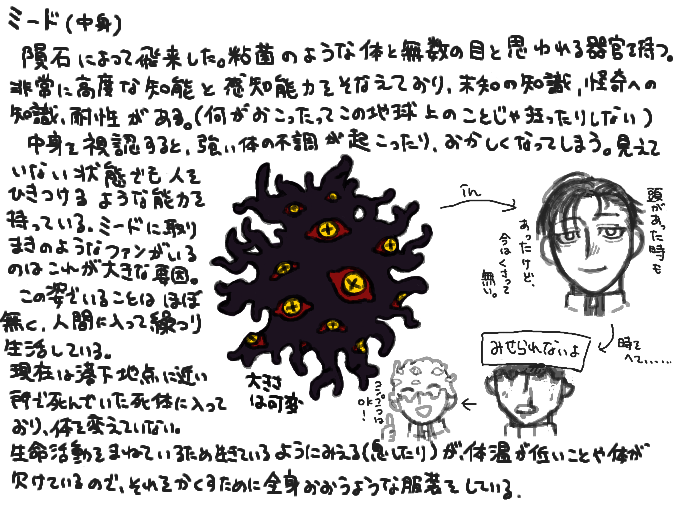 ミード(中身)
隕石によって飛来した。粘菌のような体と無数の目と思われる器官を持つ。
非常に高度な知能と感知能力をそなえており、未知の知識、怪奇への
知識、耐性がある。(何がおこったってこの地球上のことじゃ狂ったりしない)
中身を視認すると、強い体の不調が起こったり、おかしくなってしまう。見えて
いない状態でも人を
ひきつけるような能力を
持っている。ミードに取り
まきのようなファンがいる
のはこれが大きな要因。
この姿でいることはほぼ
無く、人間に入って繰つり
生活している。
現在は落下地点に近い
所で死んでいた死体に入って
おり、体を変えていない。
生命活動をまねているため生きているようにみえる(息したり)が、体温が低いことや体が
欠けているので、それをかくすために全身おおうような服装をしている。
大きさ
は可変
in
頭があった時も
あったけど、
今はくさって
無い。
時を
へて……
みせられないよ
コップつは
OK!